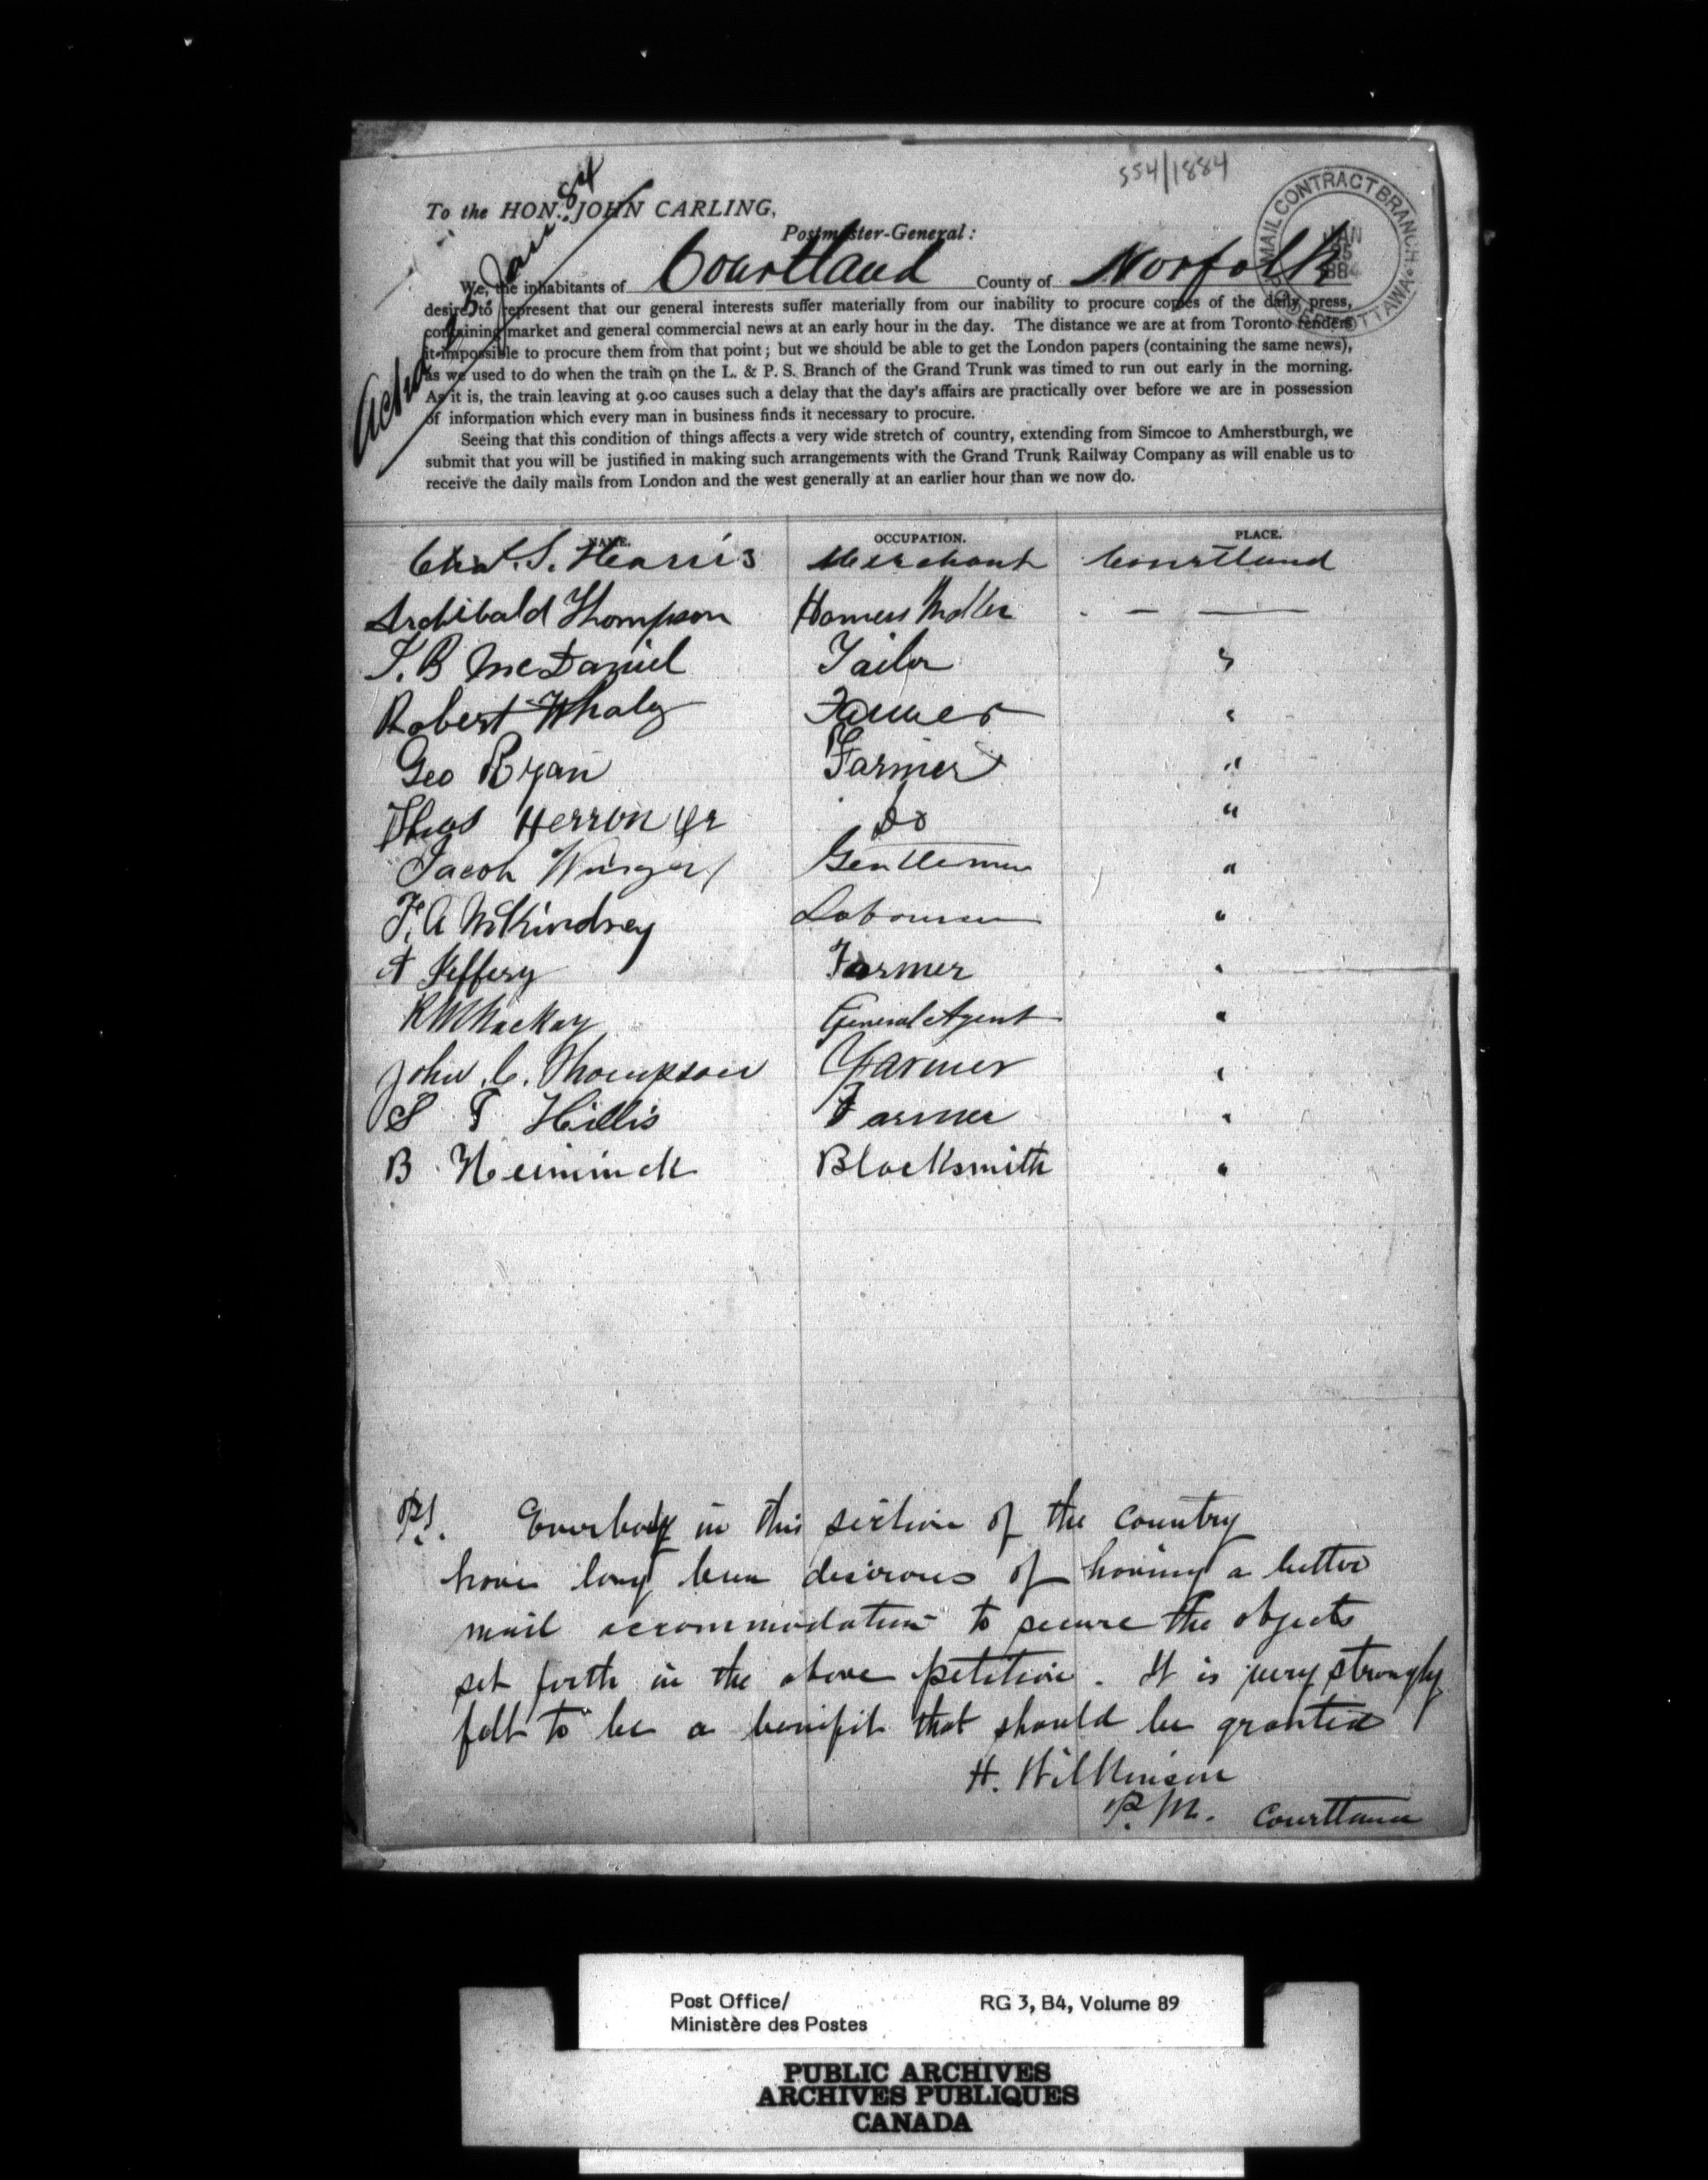 554/1884
MAIL CONTRACT BRANCH
JAN
25
1884
P.O. DEPT. OTTAWA
To the HON. JOHN CARLING,
Postmaster-General:
We, the inhabitants of Courtland County of Norfolk
desire to represent that our general interests suffer materially from our inability to procure copies of the daily press,
containing market and general commercial news at an early hour in the day. The distance we are at from Toronto renders
it impossible to procure them from that point; but we should be able to get the London papers (containing the same news),
as we used to do when the train on the L. & P. S. Branch of the Grand Trunk was timed to run out early in the morning.
As it is, the train leaving at 9.00 causes such a delay that the day's affairs are practically over before we are in possession
of information which every man in business finds it necessary to procure.
Seeing that this condition of things affects a very wide stretch of country, extending from Simcoe to Amherstburgh, we
submit that you will be justified in making such arrangements with the Grand Trunk Railway Company as will enable us to
receive the daily mails from London and the west generally at an earlier hour than we now do.
NAME. OCCUPATION. PLACE.
Chas. S. Harris Merchant Courtland
Archibald Thompson Harness Maker - — —
S. B McDaniel Tailor "
Robert Whaly Farmer "
Geo Ryan Farmer "
Thos Herron Jr Do "
Jacob Gentleman "
F. A McKindsey Labourer "
A Jeffery Farmer "
R W Mackay General Agent "
John C. Thompson Farmer "
S T Hillis Farmer "
B Blacksmith "
P.S. Everbody in this section of the country
have long been desirous of having a better
mail accommodation to secure the objects
set forth in the above petition. It is very strongly
felt to be a benifit that should be granted
H. Wilkinson
P.M. Courtland
Post Office/ RG 3, B4, Volume 89
Ministère des Postes
PUBLIC ARCHIVES
ARCHIVES PUBLIQUES
CANADA